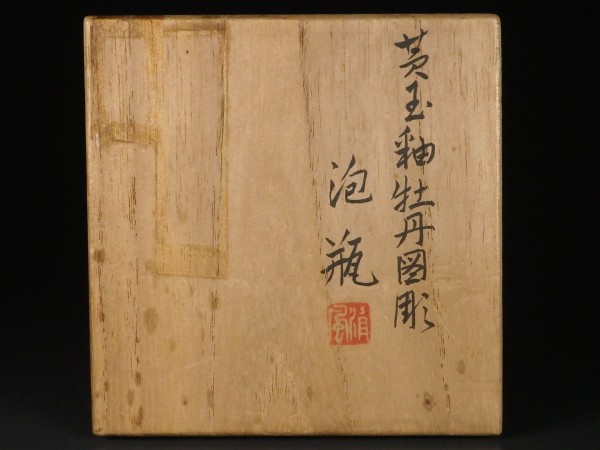 黄玉釉牡丹図彫
泡瓶